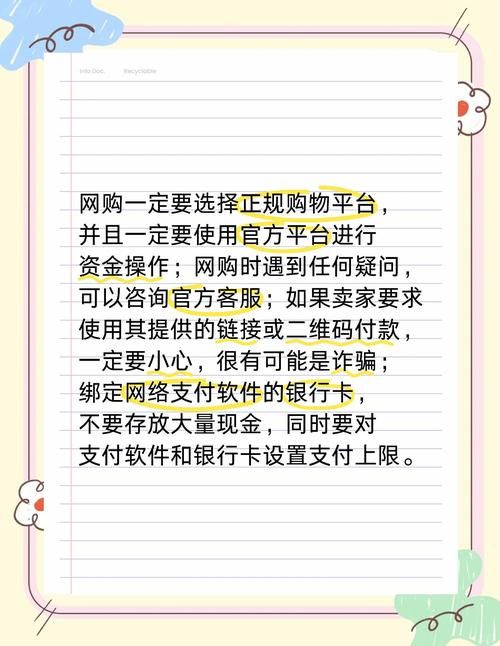 Info.Doc. Recyclable
网购一定要选择正规购物平台，
并且一定要使用官方平台进行
资金操作；网购时遇到任何疑问，
可以咨询官方客服；如果卖家要求
使用其提供的链接或二维码付款，
一定要小心，很有可能是诈骗；
绑定网络支付软件的银行卡，
不要存放大量现金，同时要对
支付软件和银行卡设置支付上限。